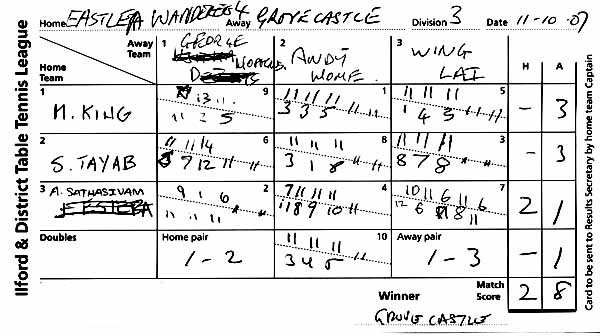 Home EASTLEA WANDERERS 4 Away GROVECASTLE Division 3 Date 11-10-07
Ilford & District Table Tennis League
Away Team
Home Team
1 GEORGE
2 ANDY HOWE
3 WING LAI
H A
1 M. KING
9
13 11
11 2 5
1
11 11 11
3 3 5
5
11 11 11
1 4 5
- 3
2 S. TAYAB
6
11 11 4
7 12 11
8
11 11 11
3 1 8
3
11 11 11
8 7 8
- 3
3 A. SATHASIVAM
2
9 1 6
11 11 11
4
7 11 11 11
11 8 9 10
7
10 11 6 11 6
12 6 8 11
2 1
Doubles
Home pair
1 - 2
10
11 11 11
3 4 5
Away pair
1 - 3
- 1
Winner
GROVE CASTLE
Match Score
2 8
Card to be sent to Results Secretary by home team Captain